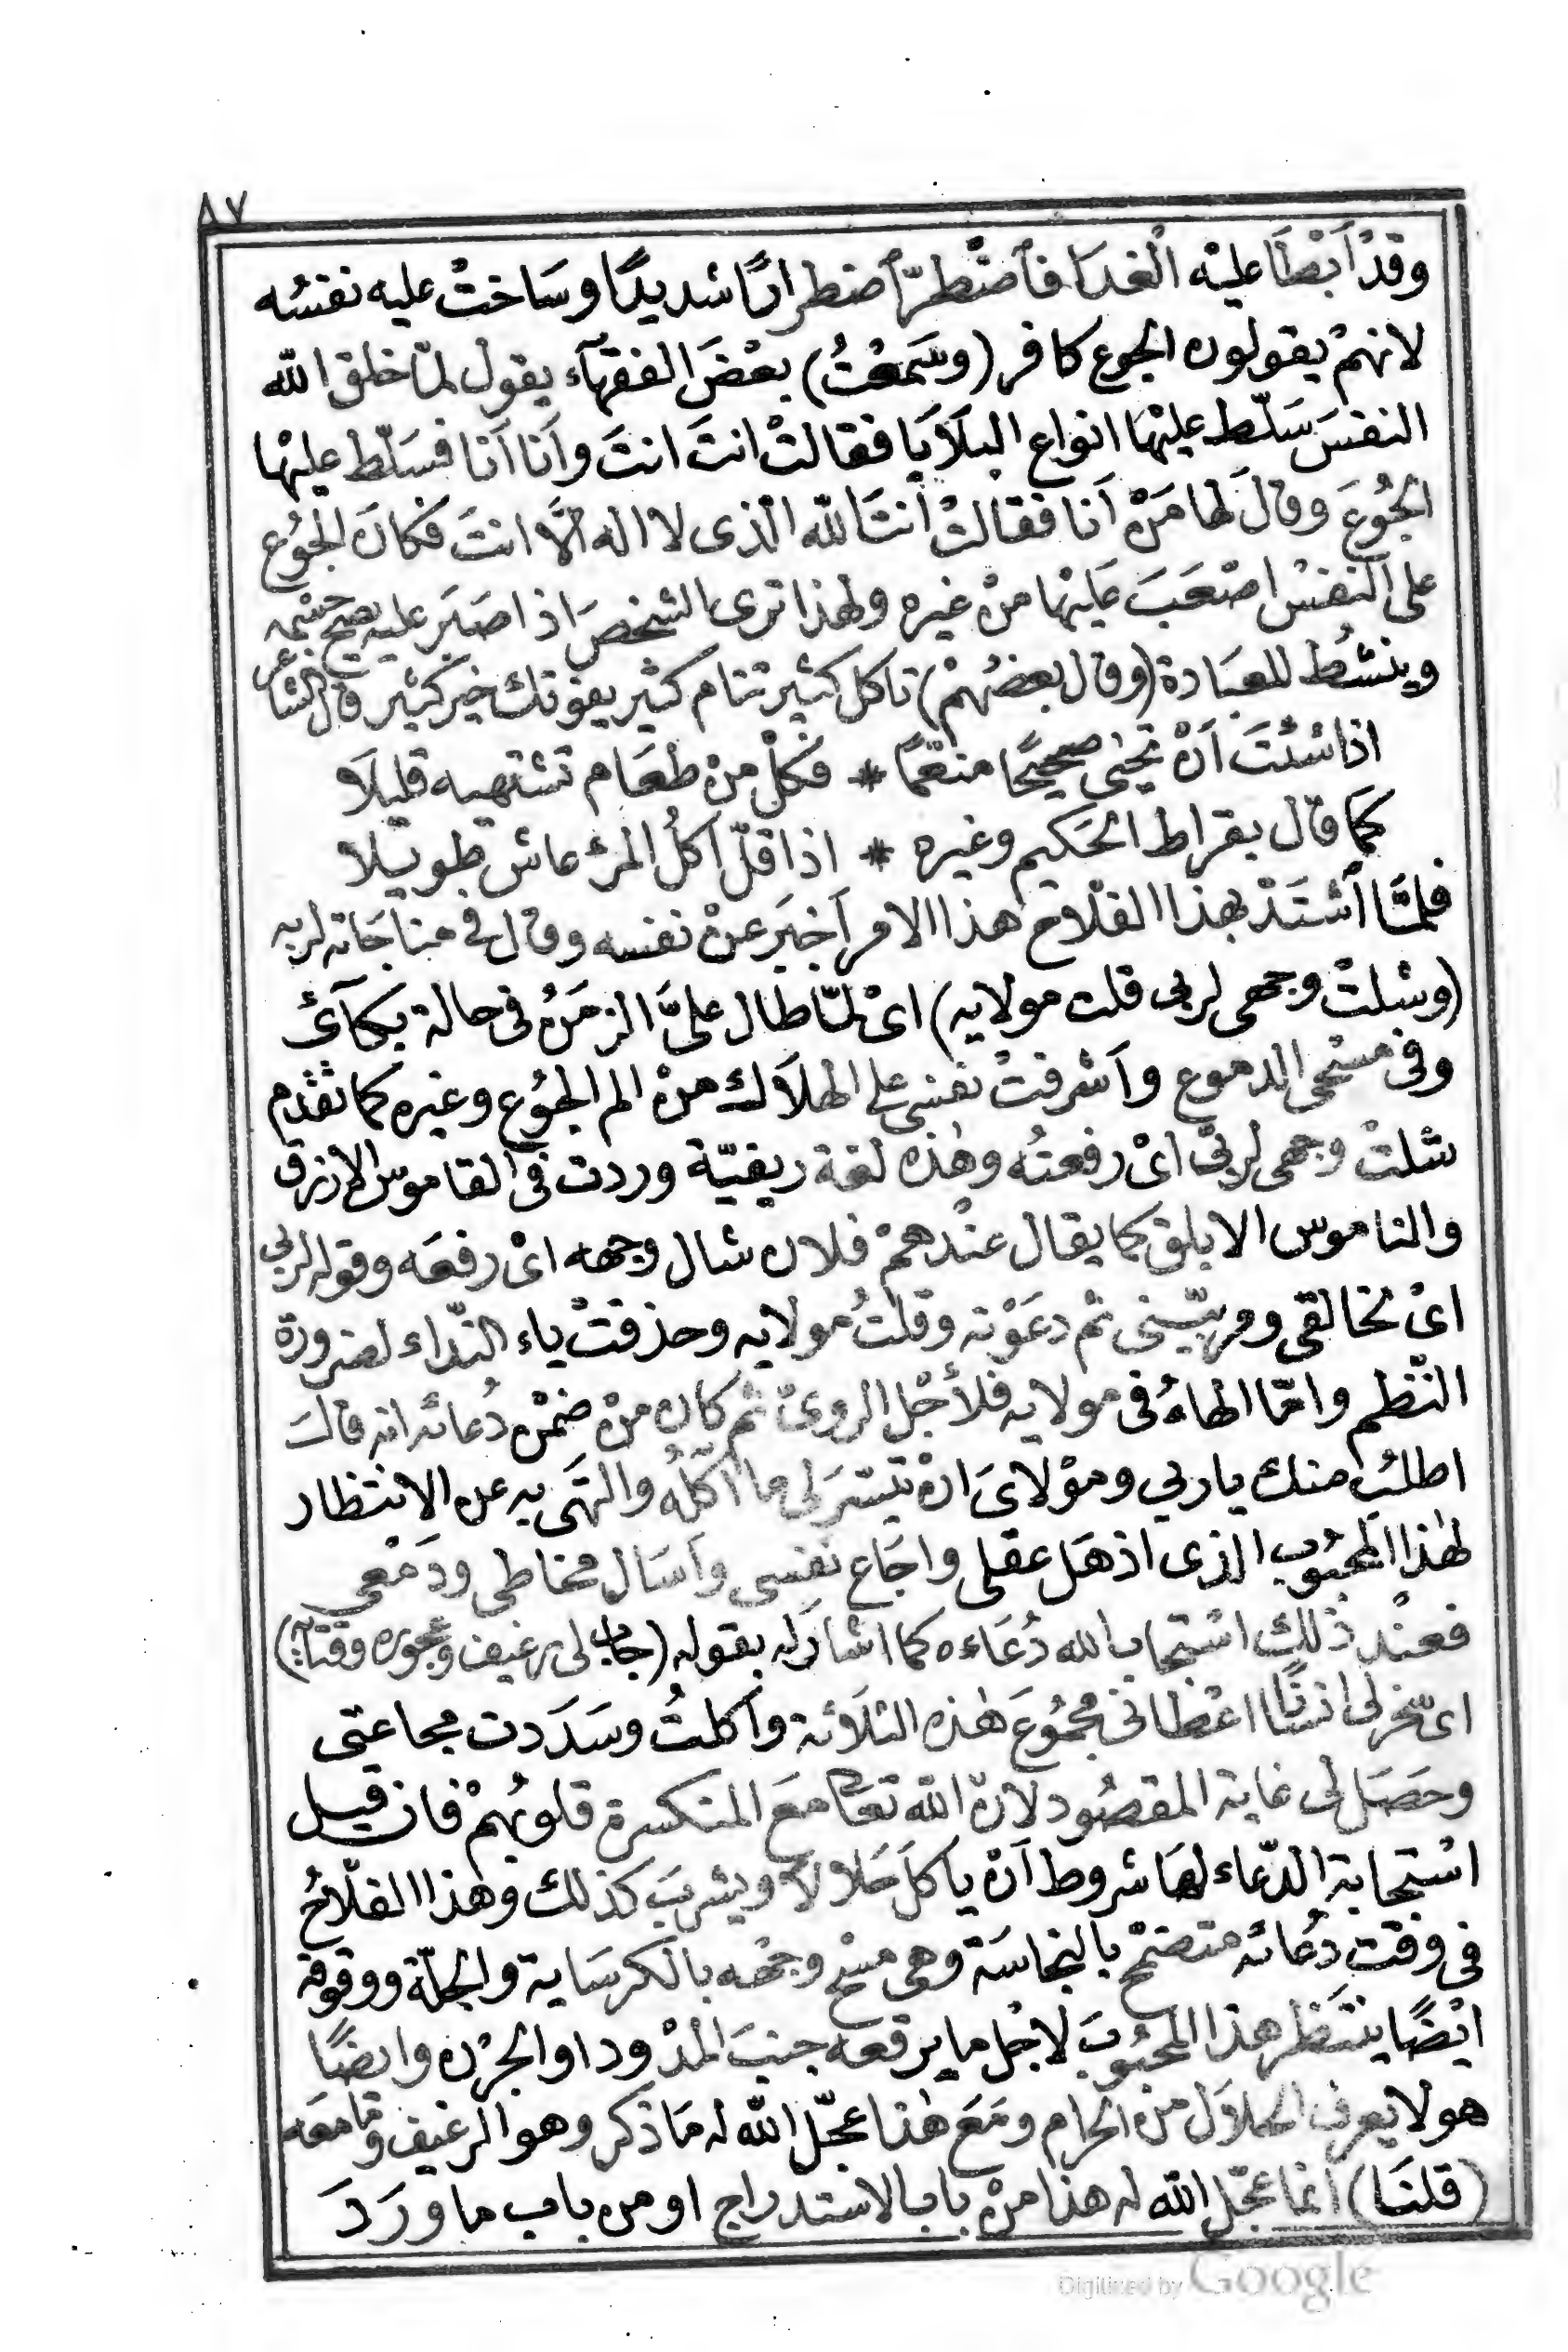 ٨٧
وقدْ أبْطَا عليْه الْغدَا فاَضْطرّ اَضطرارًا شديدًا وسَاختْ عليه نفسُه
لانهمْ يقولون الجوع كافر (وسَمعْتُ) بعْضَ الفقهآء يقول لمّا خلق الله
النفسَ سَلّط عليْها انواع البلَايَا فقالتْ انتَ انتَ وأنَا أنَا فسَلّط عليْها
الجُوعَ وقالَ لها مَنْ أنا فقالتْ أنتَ الله الّذى لا اله الَّا انتَ فكانَ الْجُوع
على النفسْ اصْعَبَ عَليْها منْ غيره ولهذا ترى الشخصَ اذا صَبَر عليه يصح جسْمه
وينشُط للعبَادة (وقال بعضهُمْ) تاكل كثير تنام كثير يفوتك خير كثير قال الشاعر
اذا شئتَ أنْ تحْيى صحيحًا منعّمًا * فكلْ منْ طعَام تشتهيه قليلَا
كمَا قال بقراط الحَكيم وغيره * اذا قلّ اكلُ المرْء عاش طويلا
فلمَّا أشتَدْ بهذا الفلاح هذا الامر أخبَر عنْ نفسه وقال فى مناجَاته لربه
(وشلتْ وجهى لربى قلت مولايه) اىْ لمّا طال علىَّ الزمَنُ فى حالة بكآئ
وفى مسْحى الدموع وأشرفتْ نفسى على الهلاَك منْ الم الجُوع وغيره كما تقدّم
شلتْ وجهى لربىّ اىْ رفعتُه وهٰذه لغة ريفيّة وردت فى القاموس الازرق
والناموس الابلق كما يقال عنْدهمْ فلان شال وجهه اىْ رفعَه وقوله لربى
اىْ لخالقى ومربّينى ثم دعَوْته وقلتُ مولايه وحذفتْ ياء النّداء لضرورة
النّظم وامّا الهاءُ فى مولايه فلأجْل الروىّ ثم كان منْ ضمْن دُعائه انه قالَ
اطلبُ منك ياربي ومؤلاىَ انْ تيَسّرَ لى ما اكلهُ والتهَى به عن الانتظار
لهٰذا المحْبُوب الذى اذهَل عقلى واجَاع نفِسى وأسَال مخاطى ودَمْعى
فعنْد ذٰلك اسْتجاب الله دُعَاءه كما اشار له بقوله (جاب لى رغيف وعجوره وقتايه)
اىْ سخّر لى انسَانًا اعْطانى مجمُوعَ هٰذه الثلاثة وأكلتُ وسَدَدت مجاعتى
وحصَل لى غاية المقصُود لانّ الله تعَالى معَ المنكسرة قلوبُهمْ فان قيل
اسْتجابة الدّعاء لهَا شروط أنْ ياكلَ حَلالا ويشربَ كذلك وهٰذا الفلّاحُ
فى وقت دُعائه متضمّخ بالنجاسَة وهى مسْح وجْهه بالكرسَاية والجلّة ووقوفه
ايْضًا ينْتَظر هذا المحْبُوبَ لاجْل ما يرقعه جنبَ المدْود او الجرْن وايضًا
هو لا يعرف الحلاَل منْ الحرام ومَعَ هٰذا عجّل الله له مَا ذكر وهو الرغيف وما معَه
(قلنَا) انما عجّل الله له هذا منْ باب الاستدراج او من باب ما ورَدَ
Digitized by Google